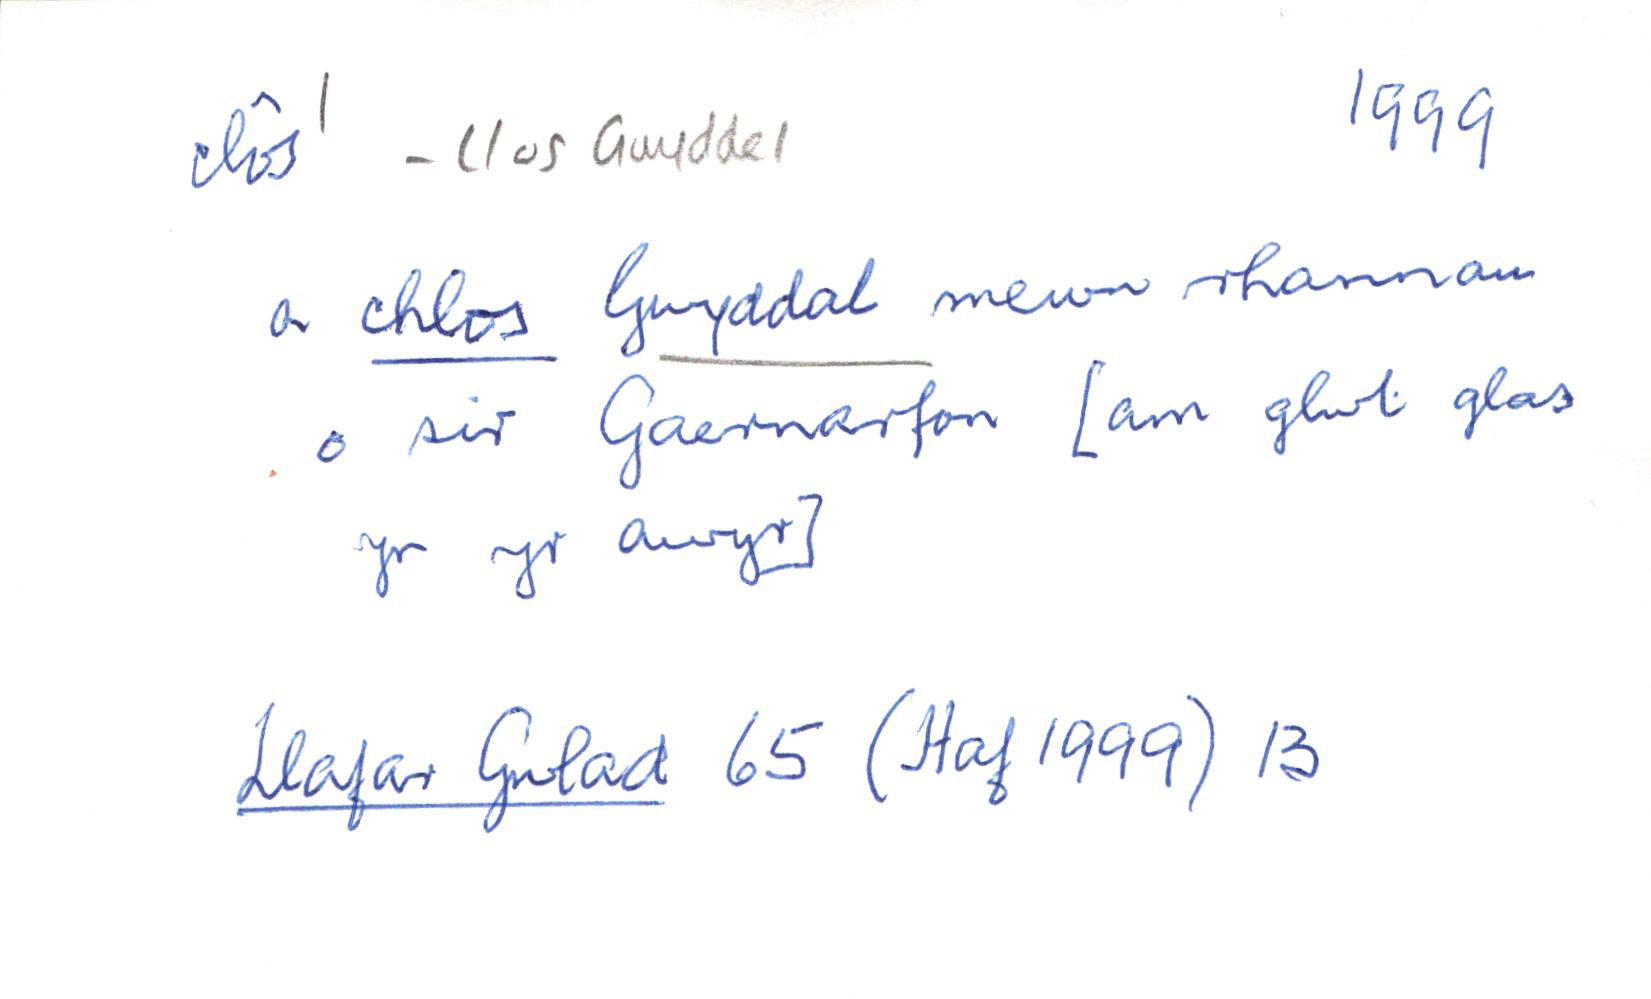 clôs¹ - clos Gwyddel 1999
a chlos Gwyddal mewn rhannau
o sir Gaernarfon [am glwt glas
yr yr awyr]
Llafar Gwlad 65 (Haf 1999) 13